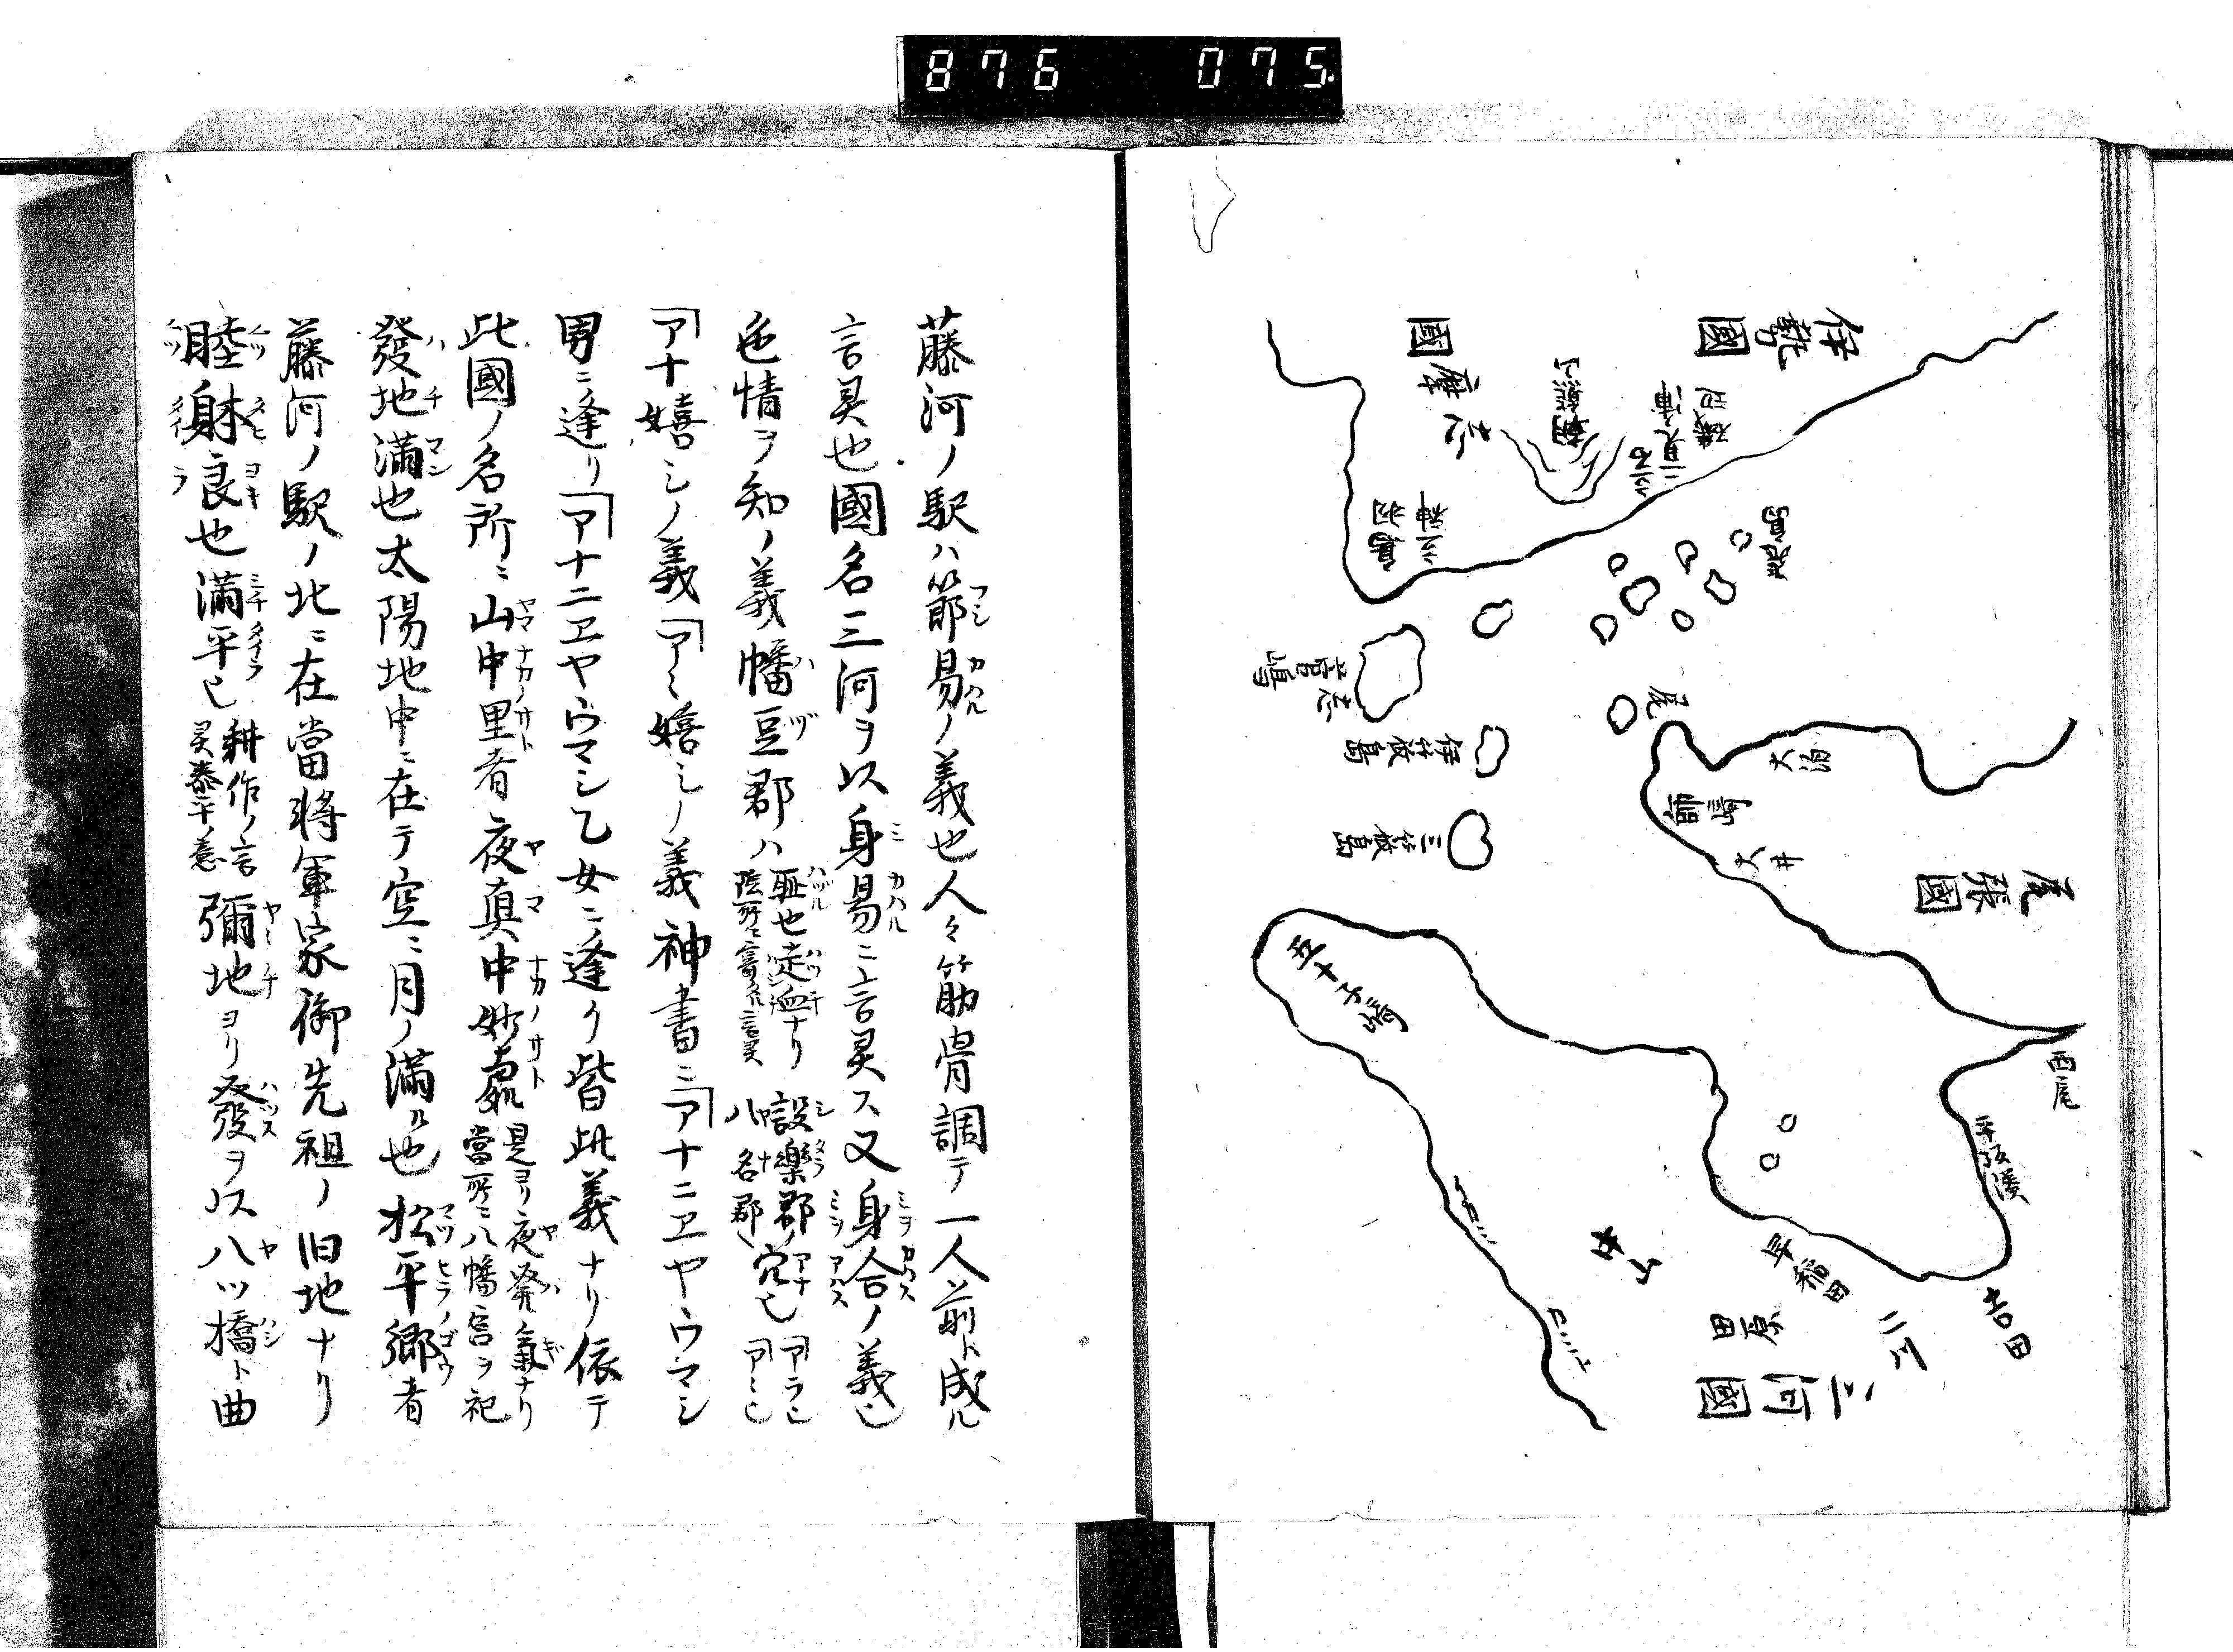 876 075.
伊勢國
志摩國
朝熊山
二見浦
尾張國
大井
師崎
伊良
三河國
田原
吉田
早稲田
中山
西尾
平坂湊
藤河ノ駅ハ節易ノ義也人々筋骨調テ一人前ト成ル
言灵也國名三河ヲ以身易ニ言灵ス又身合ノ義也
色情ヲ知ノ義幡豆郡ハ耻也走血ナリ設樂郡ノ穴也
八名郡
アナ嬉シノ義アヽ嬉シノ義神書ニアナニヱヤウマシ
男ニ逢リアナニヱヤウマシ乙女ニ逢ク皆此義ナリ依テ
此國ノ名所ニ山中里者夜真中妙處是ヨリ夜発ノ氣ナリ
當所ニ八幡宮ヲ祀
發地満也太陽地中ニ在テ空ニ月ノ満ル也松平郷者
藤河ノ駅ノ北ニ在當將軍家御先祖ノ旧地ナリ
睦躰良也満平也耕作ノ言
灵泰平ノ意
彌地ヨリ發ヲ以八ツ橋ト曲